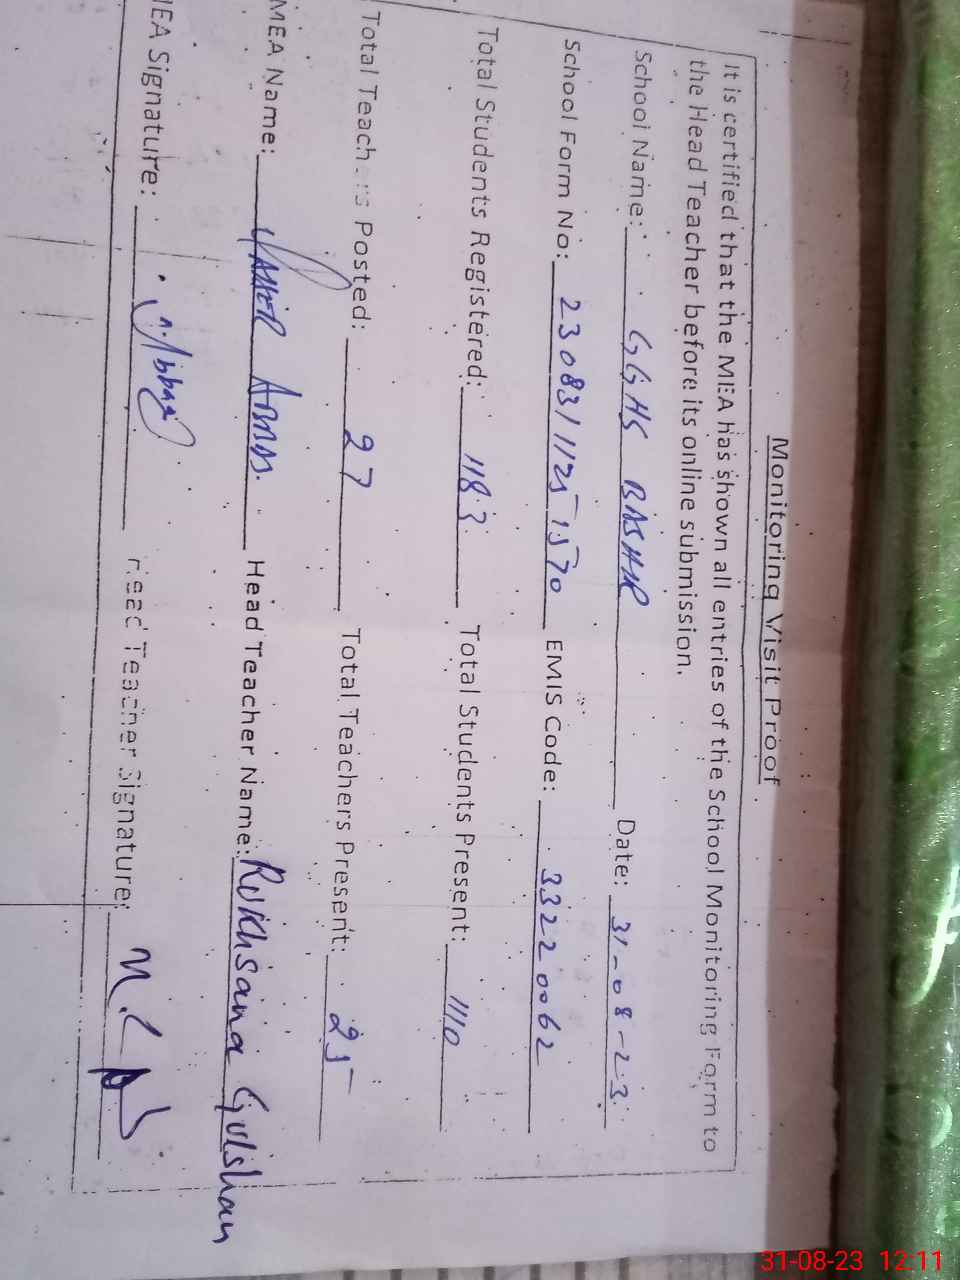 Monitoring Visit Proof
It is certified that the MEA has shown all entries of the School Monitoring Form to
the Head Teacher before its online submission.
School Name: GGHS BASHIR Date: 31-08-23
School Form No: 2308311251570 EMIS Code: 33220062
Total Students Registered: 1183 Total Students Present: 1110
Total Teachers Posted: 27 Total Teachers Present: 25
MEA Name: YASIR ABBAS. Head Teacher Name: Rukhsana Gulshan
MEA Signature: Head Teacher Signature:
31-08-23 12:11